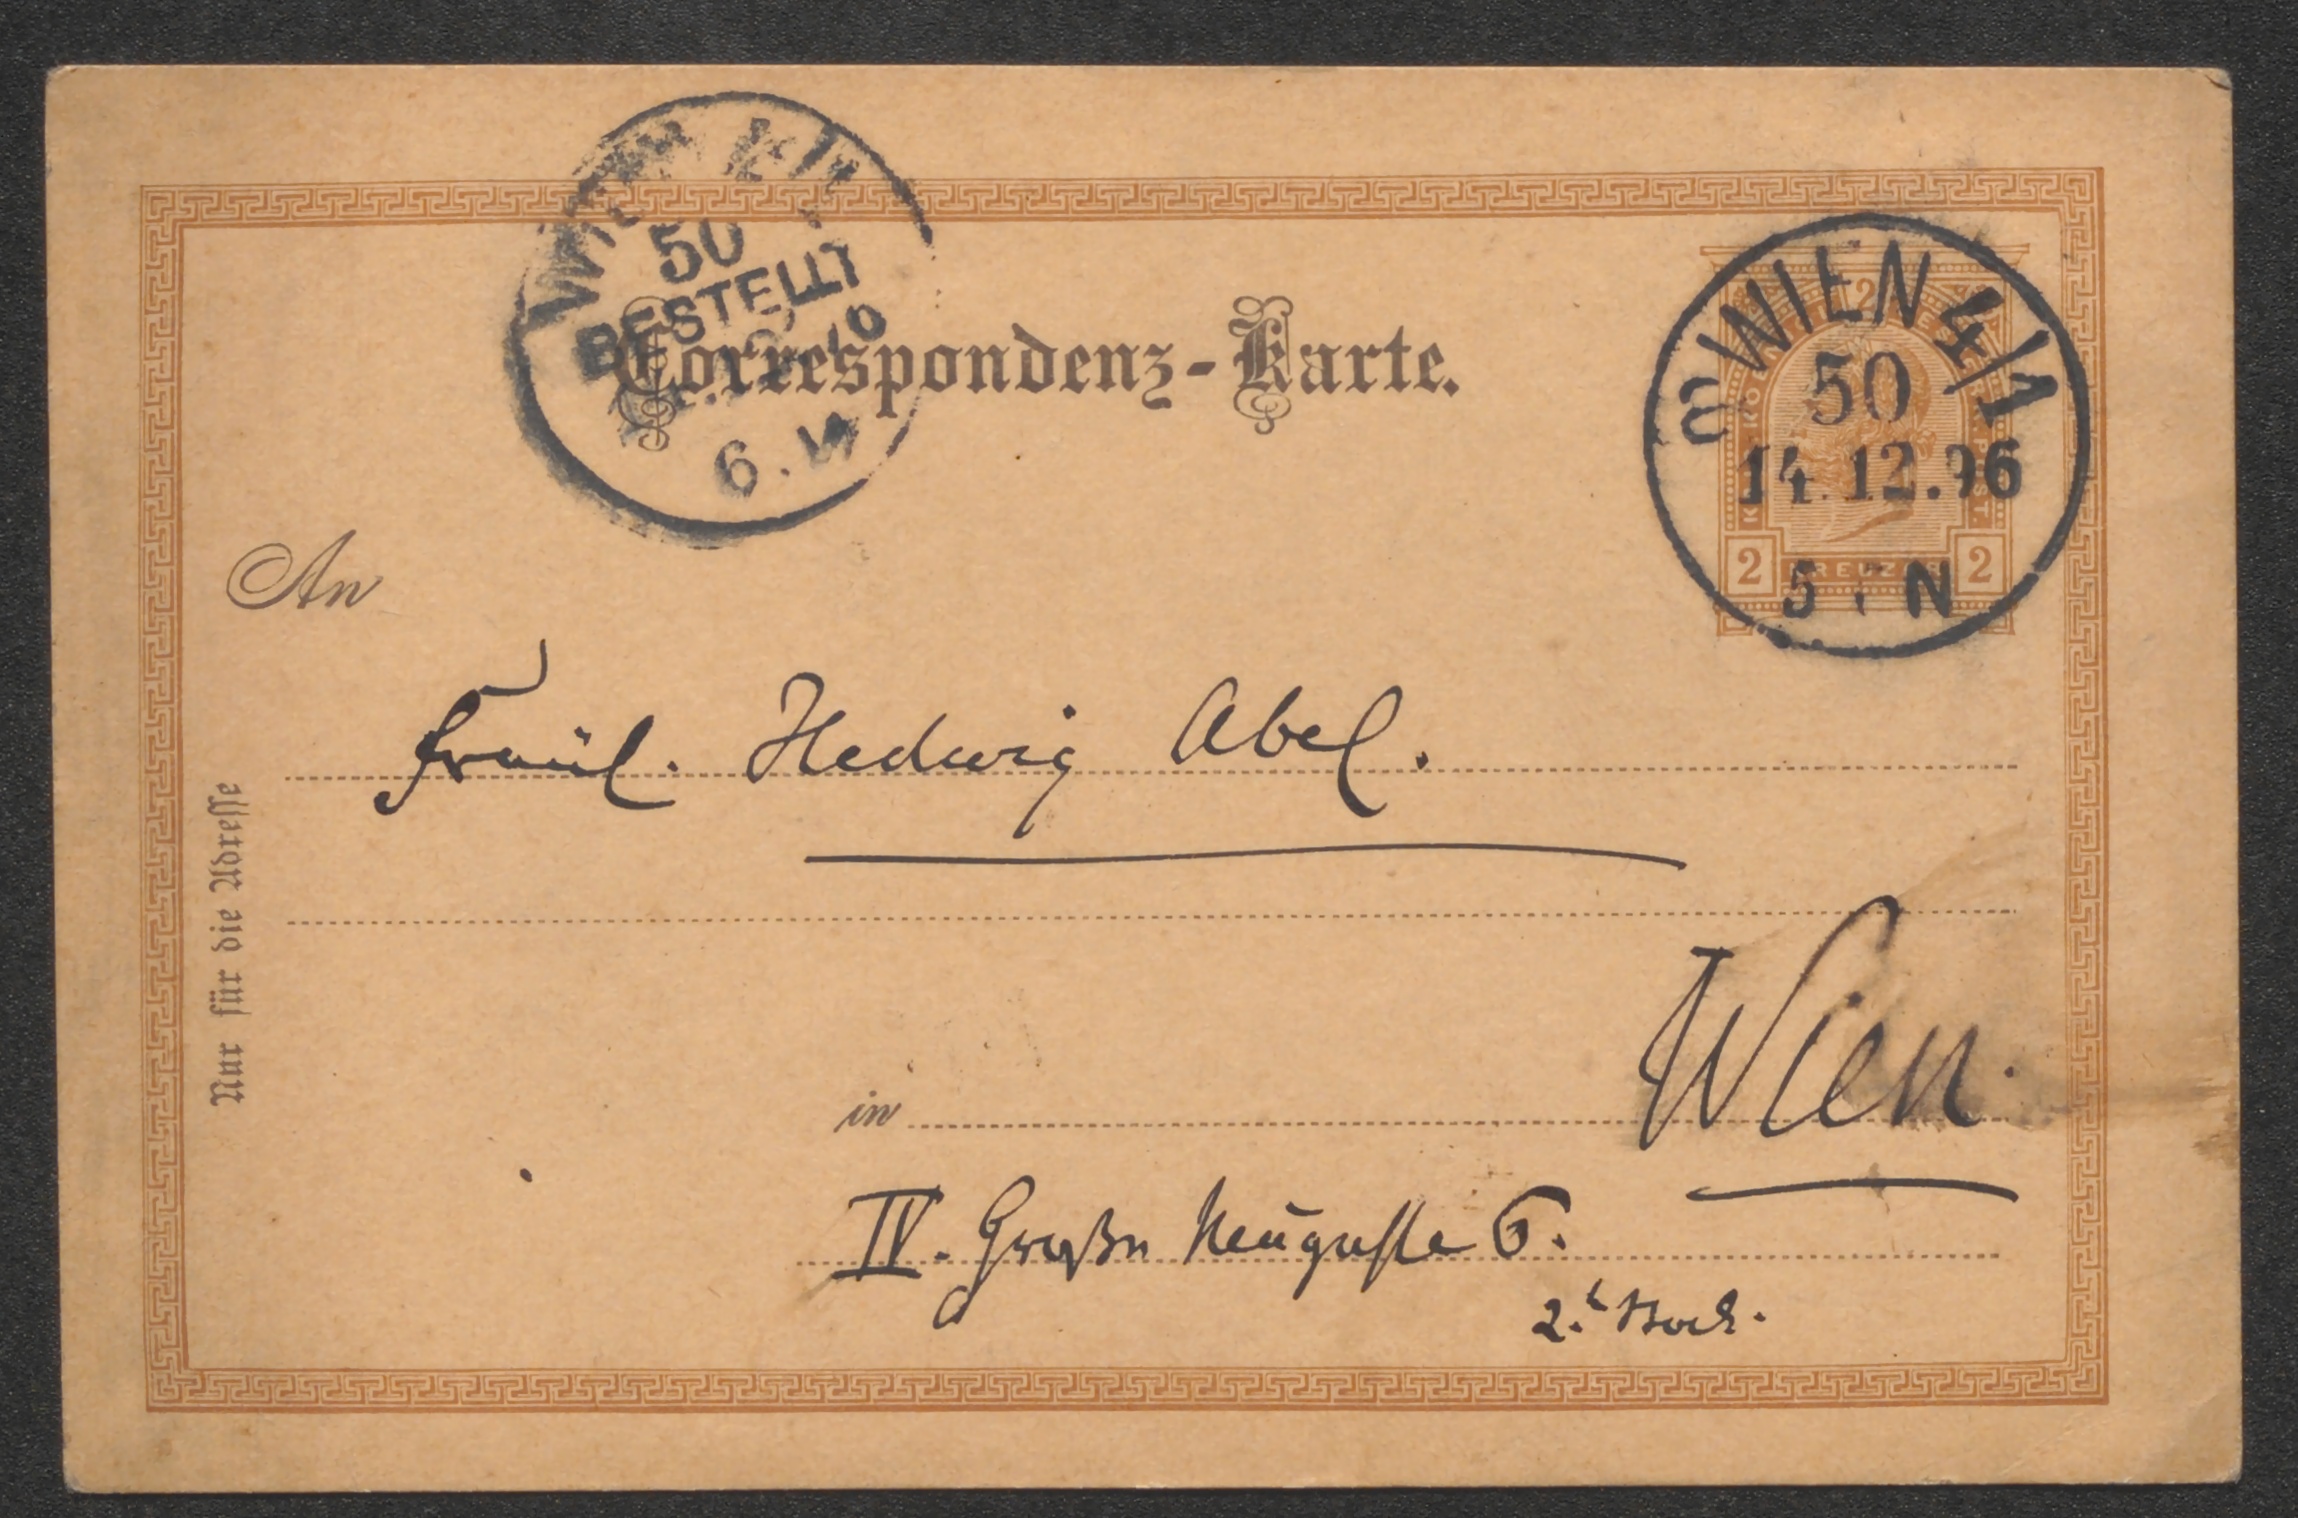 WIEN
50
BESTELLT
6.
Correspondenz-Karte.
WIEN 4/1
50
14.12.96
5 N
2 KREUZER 2
An
Fräul. Hedwig Abel.
Nur für die Adresse
in Wien.
IV. Große Neugasse 6.
2. Stock.